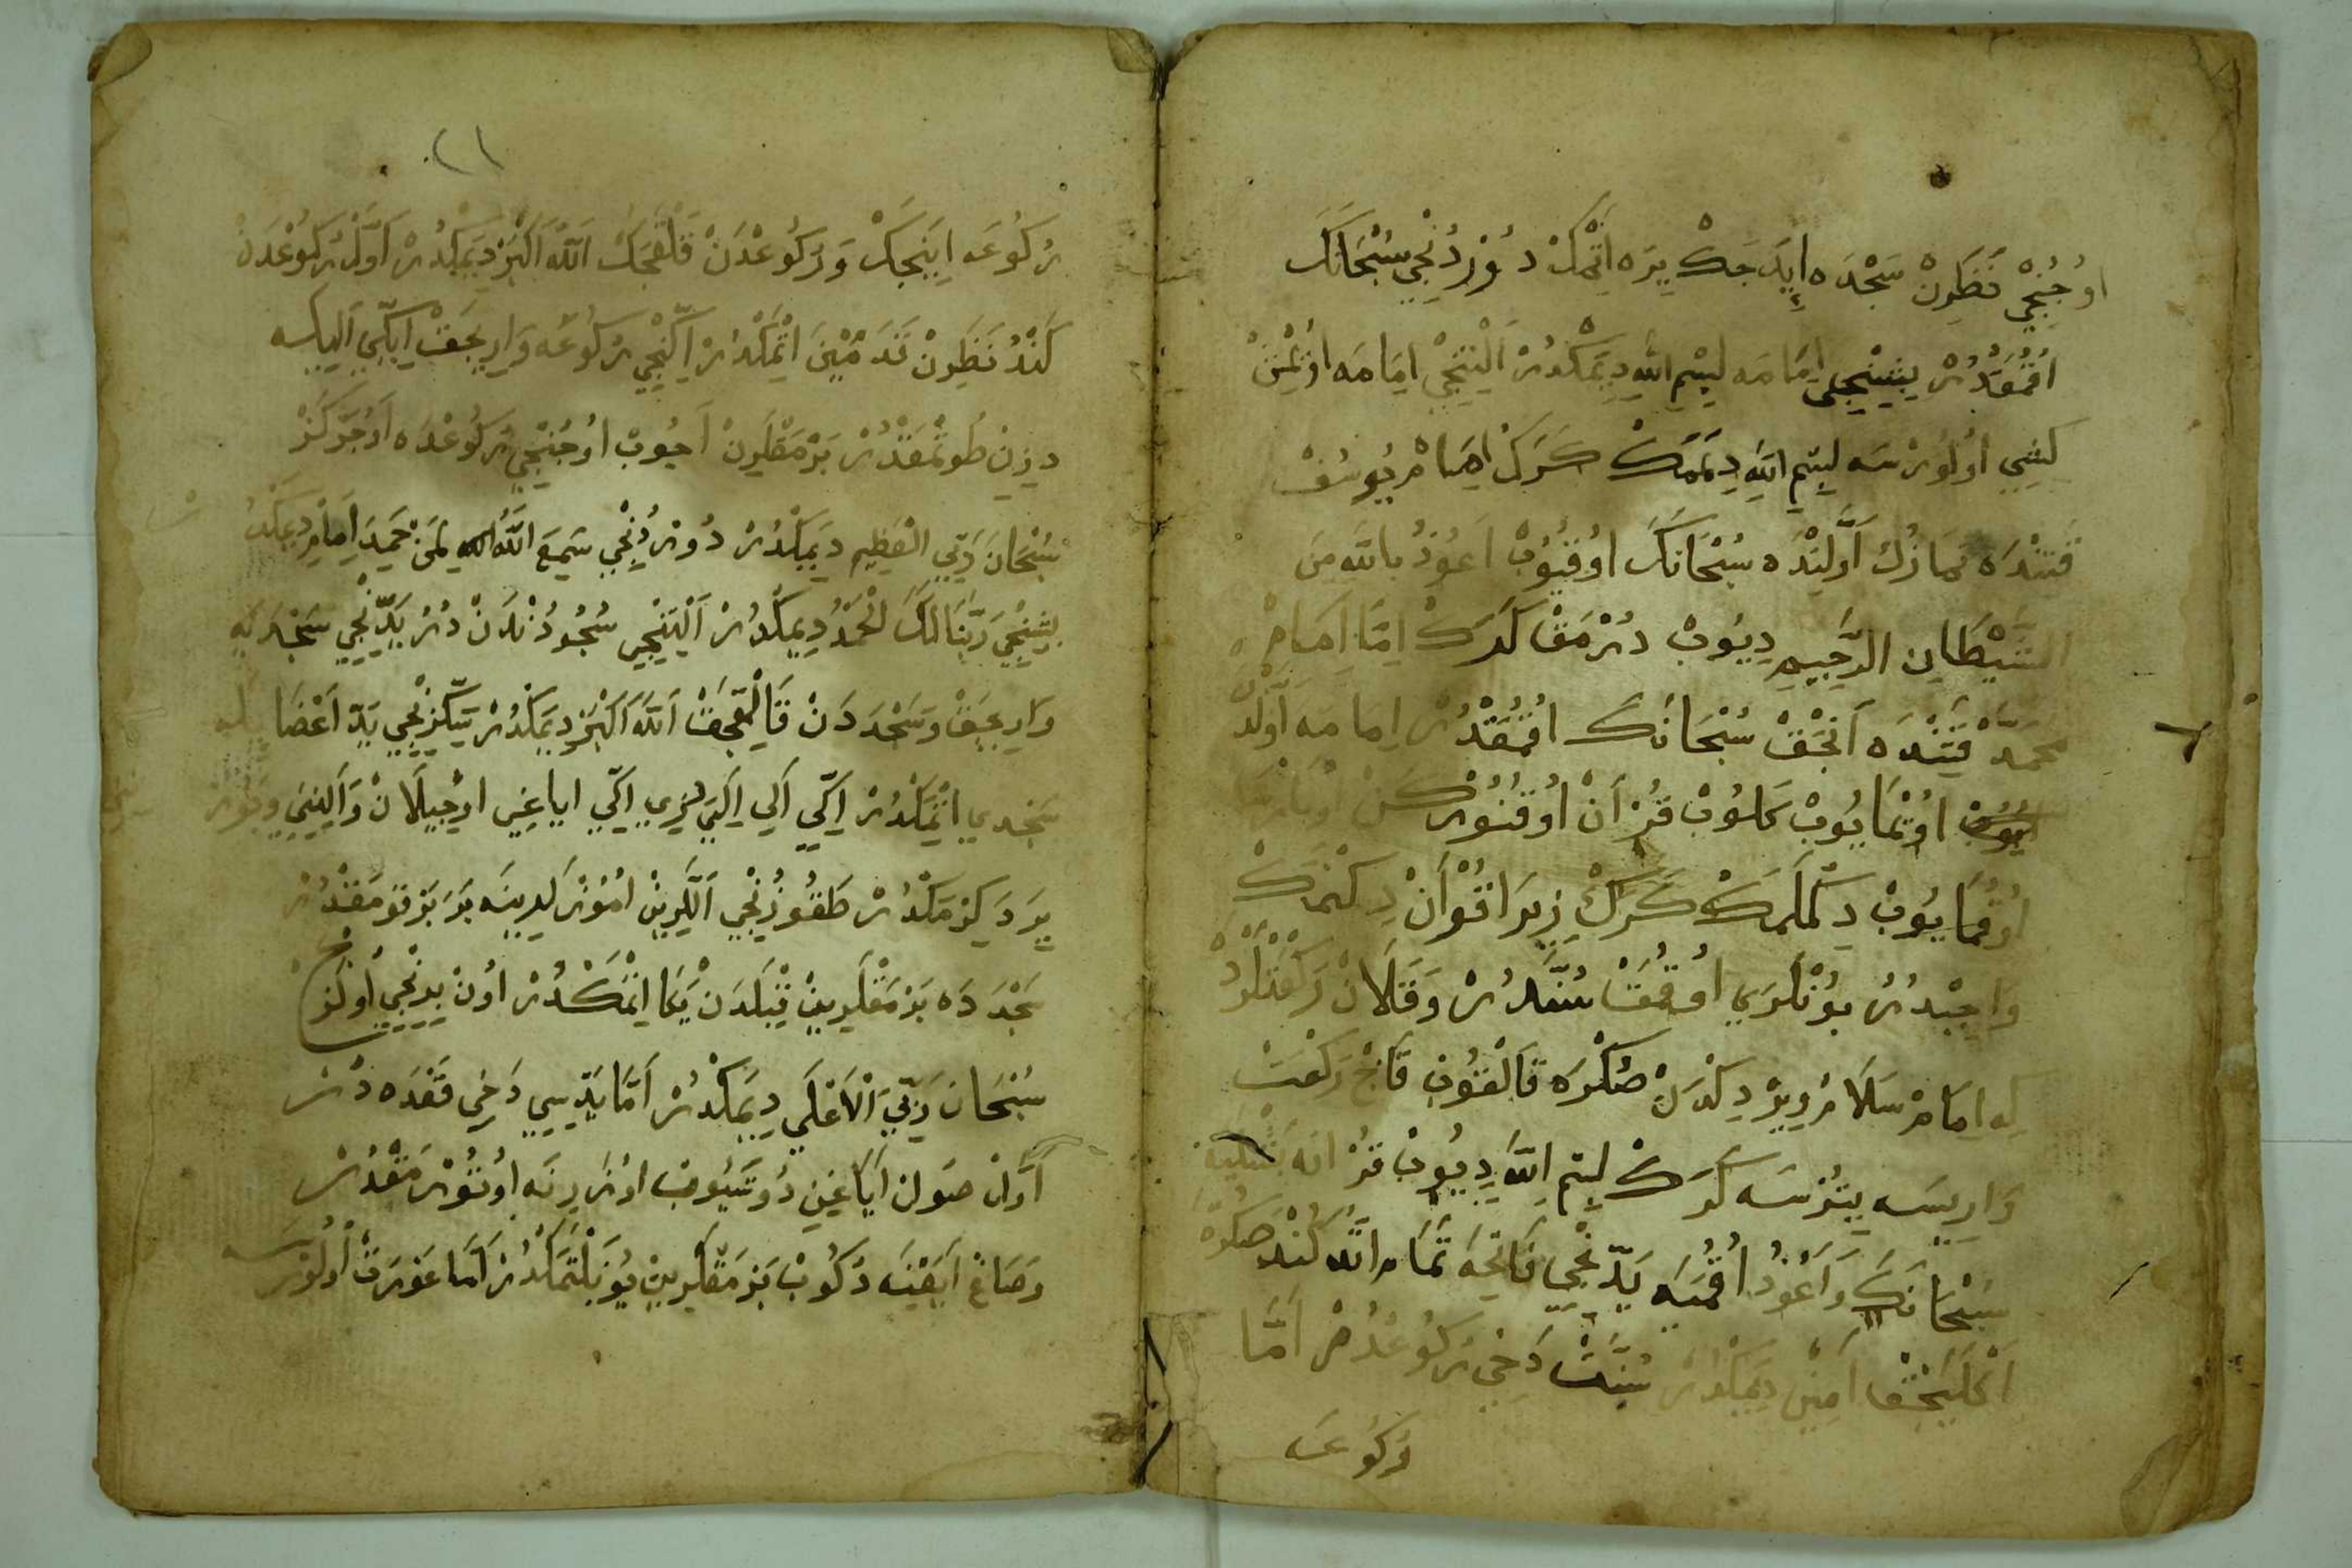 اوُجُنْجِي نَظَرِنْ سَجْدَه اِيدَجَكْ يِيرَه اِتْمَكْ دُوْرْدُنْجِي سُبْحَانَكَ
اُقُمَقْدُرْ بِشِنْجِي اِمَامَه بِسْمِ اللهِ دِيمَكْدُرْ اَلْتِنْجِي اِمَامَه اوُيْمِشْ
كِشِي اوُلُوْرْسَه بِسْمِ اللهِ دِمَمَكْ كَرَكْ اِمَامْ يُوسُفْ
قَتِنْدَه نَمَازُكْ اَوَّلِنْدَه سُبْحَانَكَ اوُقُيُوبْ اَعُوذُ بِاللهِ مِنَ
الشَّيْطَانِ الرَّجِيمِ دِيُوبْ دُرْمَقْ كَرَكْ اِمَّا اِمَامْ
مُحَمَّدْ قَتِنْدَه اَنْجَقْ سُبْحَانَكَ اُقُمَقْدُرْ اِمَامَه اَوَّلْدَنْ
اوُيُوبْ اوُيْمَايُوبْ كَلُوبْ قُرْاَنْ اوُقُنُورْكَنْ
اُوقُمَايُوبْ دِكْلَمَكْ كَرَكْ زِيرَا قُرْاَنْ دِكْلَمَكْ
وَاجِبْدُرْ بُونْلَرِي اُوقُمَقْ سُنَّتْدُرْ وَقَلَانْ رَكْعَتْلَرْدُ
لِه اِمَامْ سَلَامْ وِيرْدِكْدَنْ صُكْرَه قَالْقُوبْ قَاچْ رَكْعَتْ
وَارِيسَه يِتُرْسَه كَرَكْ بِسْمِ اللهِ دِيُوبْ قُرْانَه بَشْلَيَه
سُبْحَانَكَ وَاَعُوذُ اُقُمَيَه يَدِّنْجِي فَاتِحَه تَمَامْ اِتْدُكْنْدَ صُكْرَه
اَكْلَيَجَقْ اَمِينْ دِيمَكْدُرْ سُنَّتْ دَخِي رُكُوعْدُرْ اَمَّا
رُكُوعَه
رُكُوعَه اِينِجَكْ وَرُكُوعْدَنْ قَلْقِجَكْ اَللهُ اَكْبَرْ دِيمَكْدُرْ اَوَّلْ رُكُوعْدَنْ
كَنْدُ نَظَرِنْ قَدَمِينَ اِتْمَكْدُرْ اِكِّنْجِي رُكُوعَه وَارِيجَقْ اِيكِّي اَلِيلَه
دِيزِنْ طُوتْمَقْدُرْ بَرْمَقْلَرِنْ اَچُوبْ اوُچُنْجِي رُكُوعْدَه اوُچْ كَزْ
سُبْحَانَ رَبِّيَ الْعَظِيمْ دِيمَكْدُرْ دُورْدُنْجِي سَمِعَ اللهُ لِمَنْ حَمِدَه اِمَامْ دِيمَكْدُرْ
بِشِنْجِي رَبَّنَا لَكَ الْحَمْدُ دِيمَكْدُرْ اَلْتِنْجِي سُجُودُنْدَنْ دُرْ يَدِّنْجِي سَجْدَيَه
وَارِيجَقْ وَسَجْدَدَنْ قَالْقِجَقْ اَللهُ اَكْبَرْ دِيمَكْدُرْ سَكِّزِنْجِي يَدِّ اَعْضَا يلَه
سَجْدَيِ اِتْمَكْدُرْ اِكِّي اَلِي اِكِّي دِيزِي اِكِّي ايَاغِي اوُچِيلَانْ وَاَلِنِنِي وَبُورْنِي
يِرَه دَكِزْمَكْدُرْ طَقُوزُنْجِي اَلَّرِينْ اُمُوزْلَرِينَه بَرَابَرْ قُومَقْدُرْ
سَجْدَدَه بَرْمَقْلَرِينْ قِبْلَدَنْ يَكَا اِتْمَكْدُرْ اوُنْ بِرِنْجِي اوُچْ كَزْ
سُبْحَانَ رَبِّيَ الْاَعْلَى دِيمَكْدُرْ اَمَّا يَدِّيسِي دَخِي قَعْدَه دُرْ
اَوَّلْ صَولْ اَيَاغِنِي دُوشَيُوبْ اوُزَرِنَه اوُتُورْمَقْدُرْ
وَصَاغْ اَيَغِنَ دَكُوبْ بَرْمَقْلَرِينْ يُونَلْتْمَكْدُرْ اَمَّا عَوْرَتْ اوُلُورْسَه